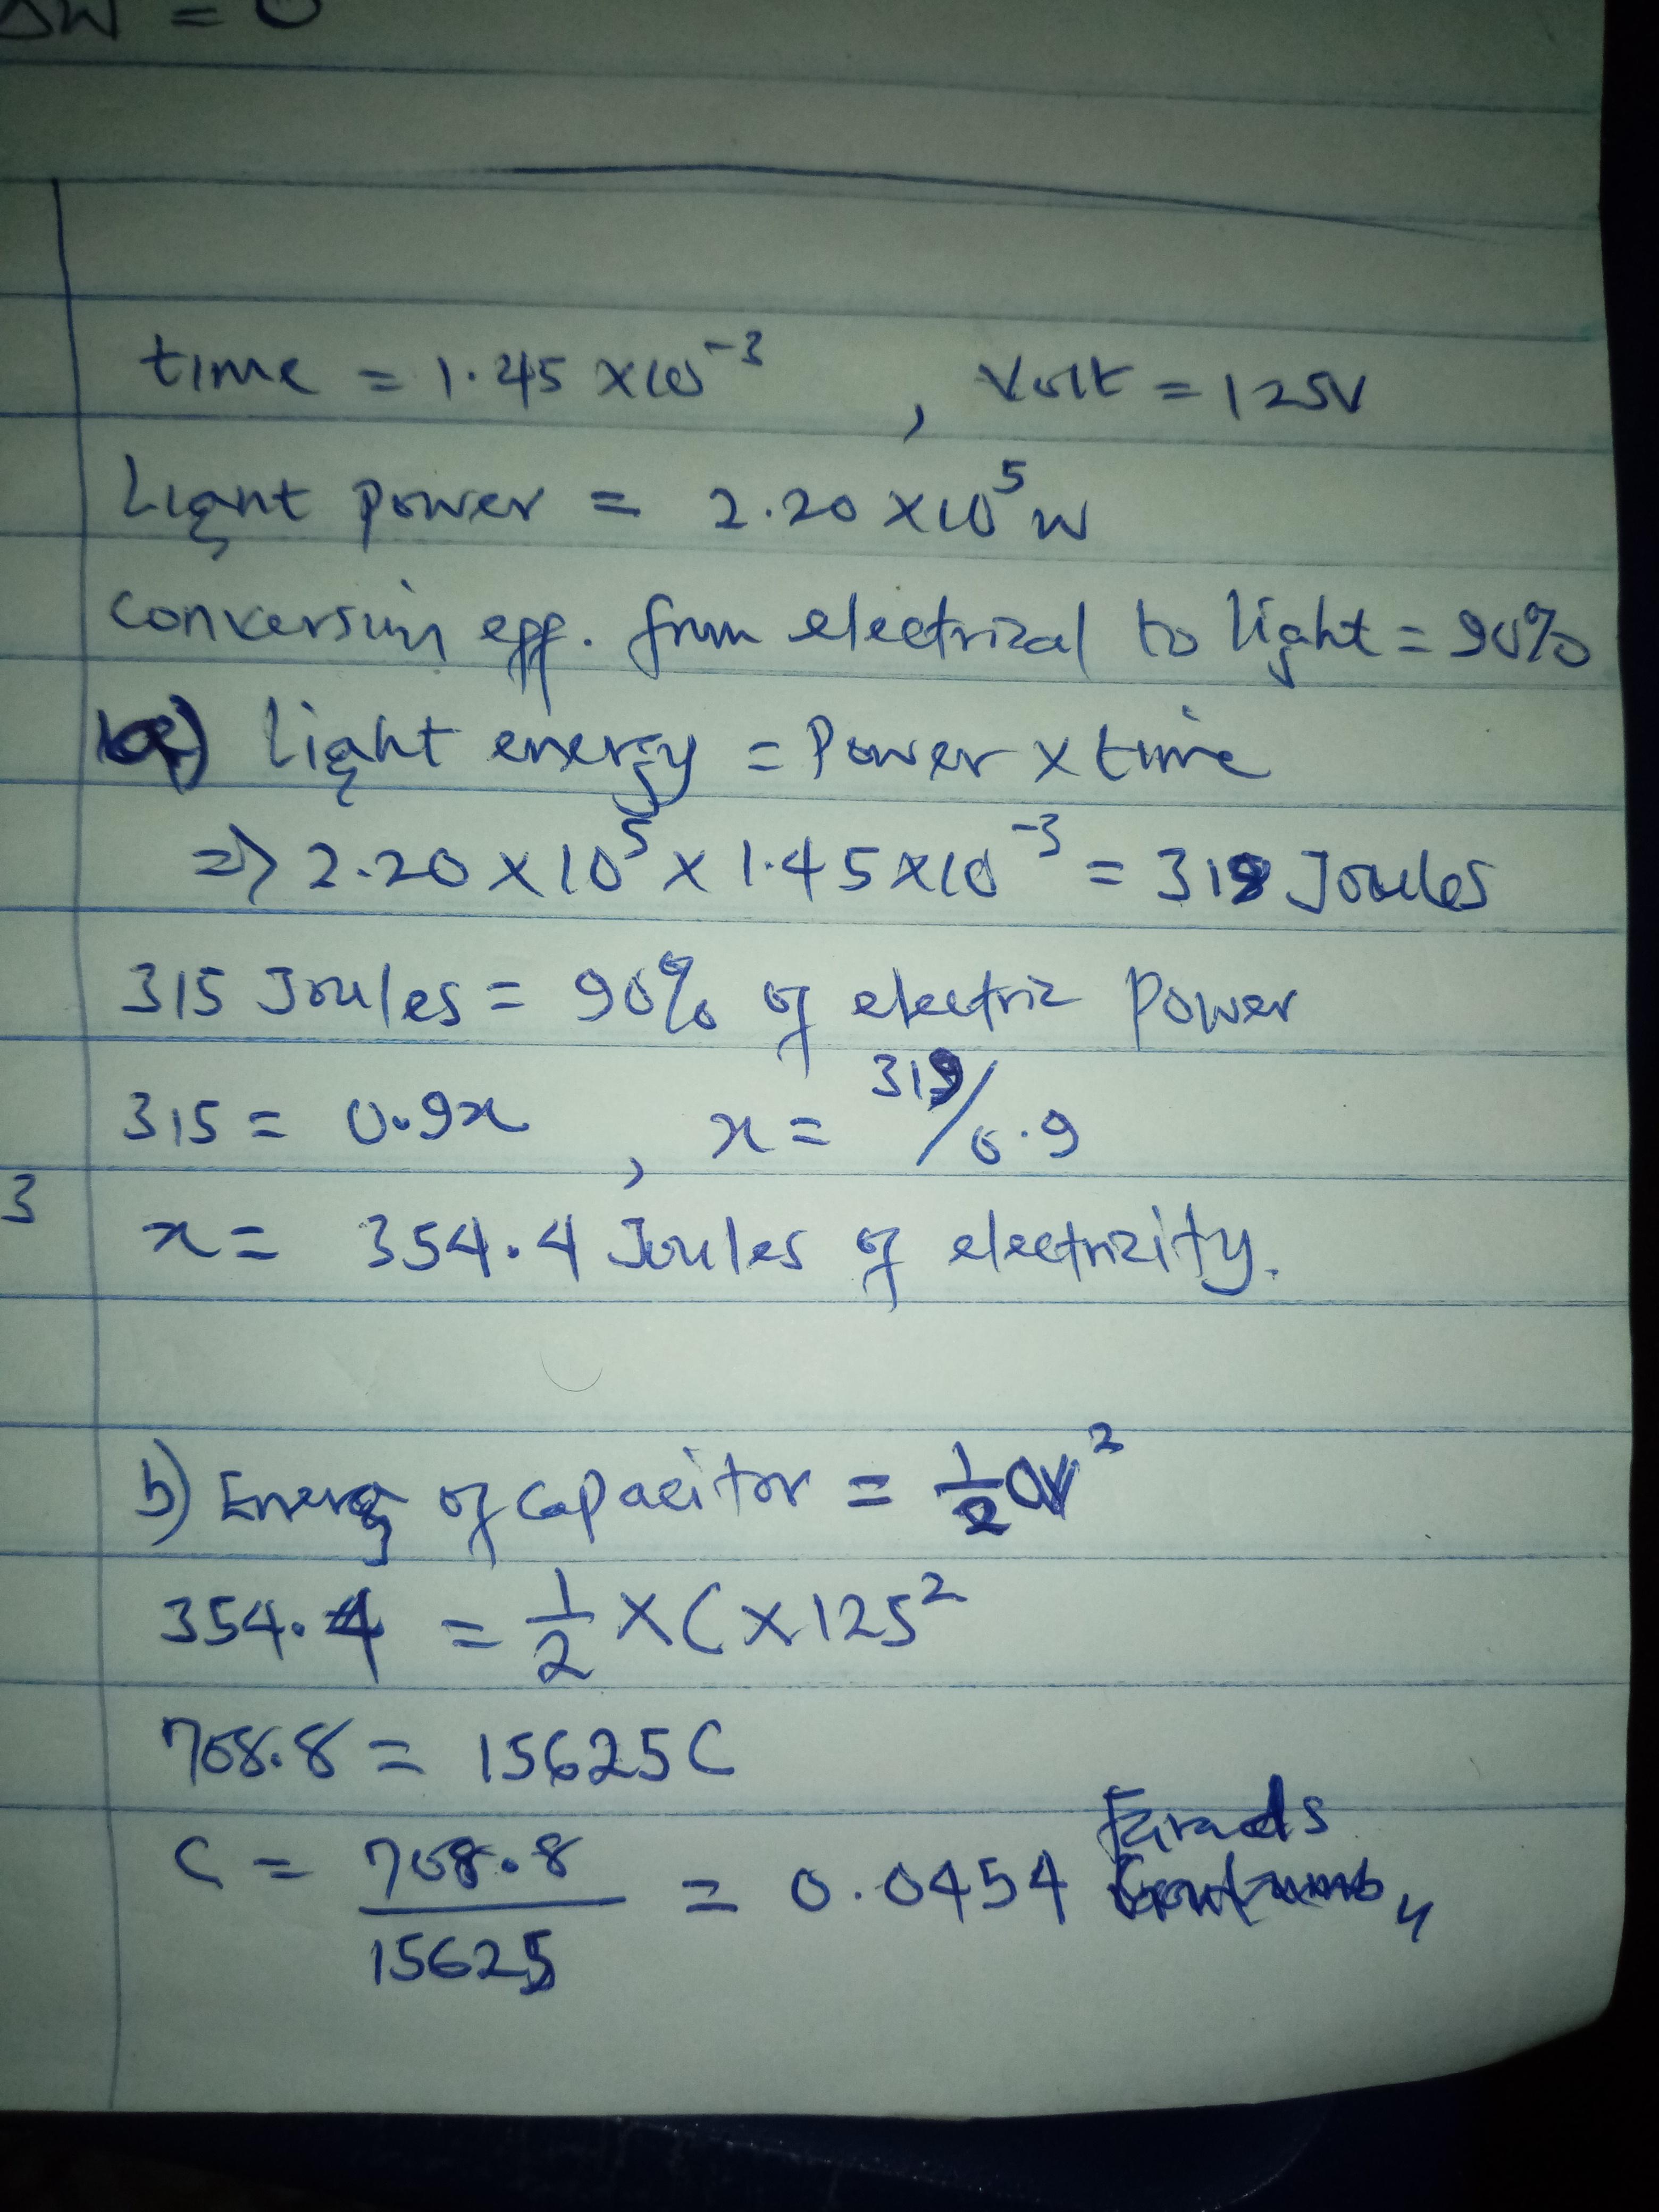 ΔW = 0
time = 1.45 x10⁻³ , Volt = 125V
Light power = 2.20 x10⁵ W
conversion eff. from electrical to light = 90%
a) Light energy = Power x time
=> 2.20 x 10⁵ x 1.45 x10⁻³ = 319 Joules
315 Joules = 90% of electric power
315 = 0.9x , x = 319/0.9
3
x = 354.4 Joules of electricity.
b) Energy of capacitor = 1/2 CV²
354.4 = 1/2 x C x 125²
708.8 = 15625C
C = 708.8/15625 = 0.0454 Farads